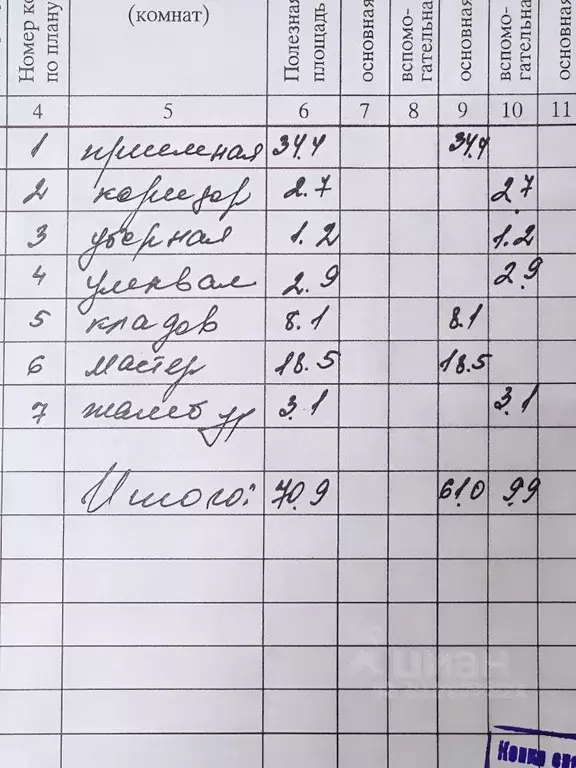 Номер ко
по плану
(комнат)
Полезная
площадь
основная
вспомо-
гательна
основная
вспомо-
гательна
основная
4 5 6 7 8 9 10 11
1 приемная 34.4 34.4
2 коридор 2.7 2.7
3 уборная 1.2 1.2
4 умывал 2.9 2.9
5 кладов 8.1 8.1
6 мастер 18.5 18.5
7 3.1 3.1
Итого: 70.9 61.0 9.9
циан
Копия